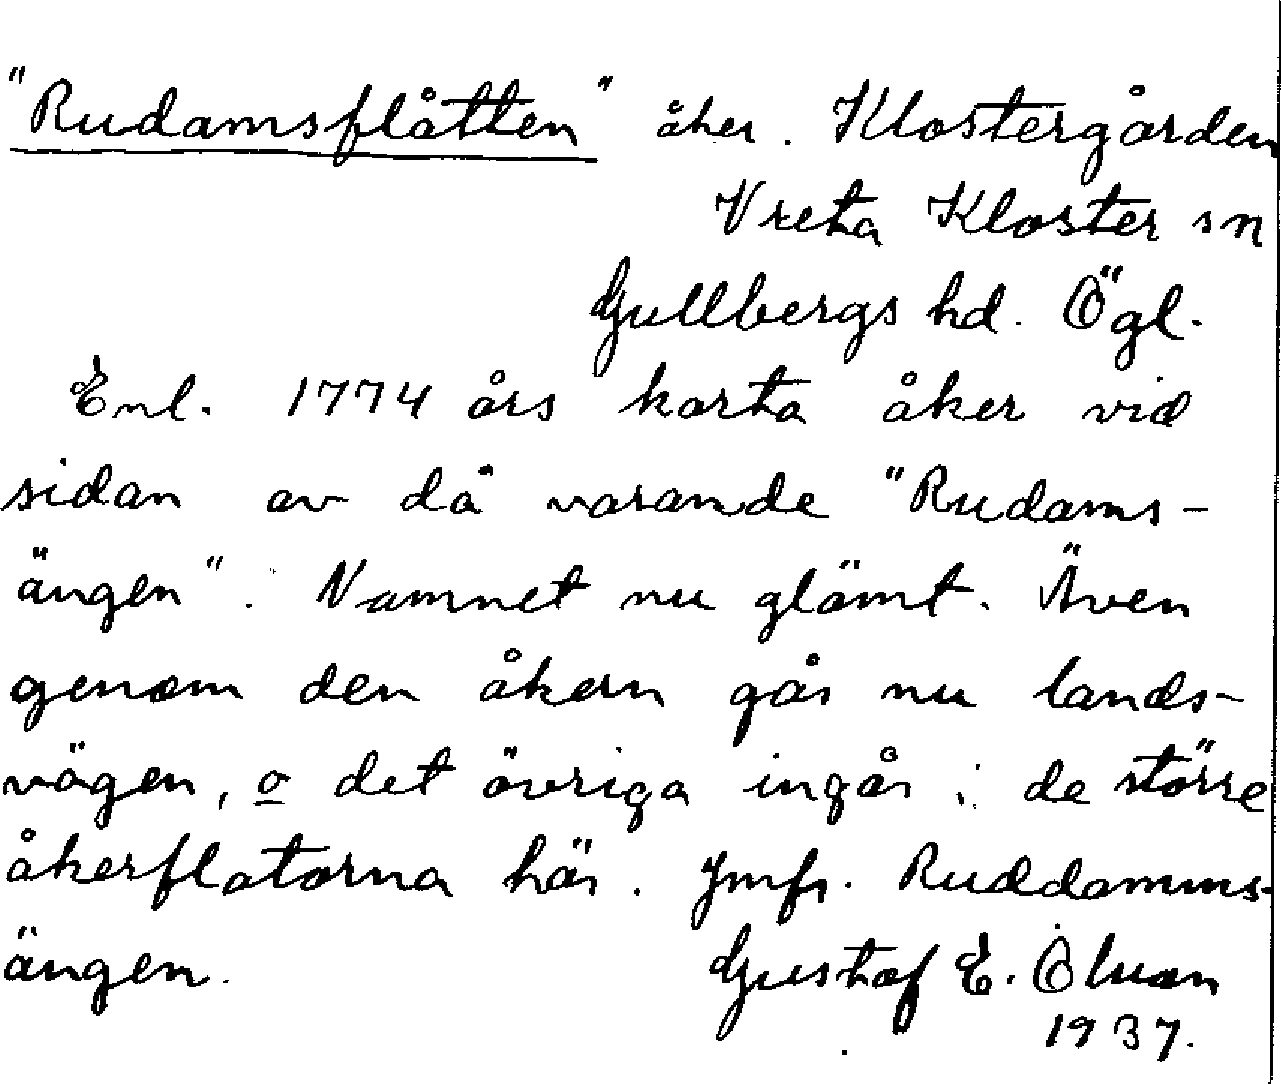 "Rudamsflåtten" åker. Klostergården
Vreta Kloster sn
Gullbergs hd. Ögl.
Enl. 1774 års karta åker vid
sidan av då varande "Rudams-
ängen". Namnet nu glömt. Även
genom den åkern går nu lands-
vägen, o det övriga ingår i de större
åkerflatorna här. Jmfr. Ruddamms-
ängen. Gustaf E.
1937.